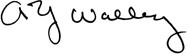 A Y Walley